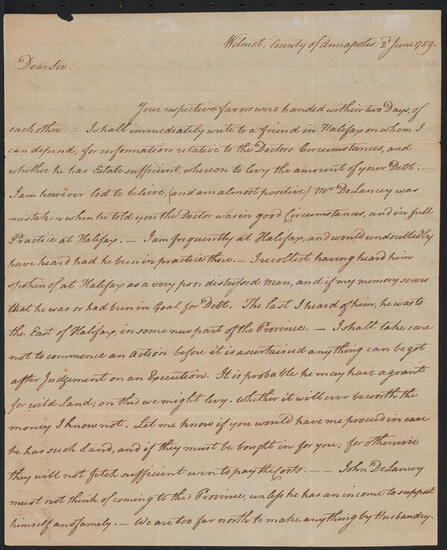 Wilmot, County of Annapolis 2d June 1789.
Dear Sir.
Your respective favors were handed within two Days, of
each other. — I shall immediately write to a friend in Halifax on whom I
can depend, for information relative to the Doctors Circumstances, and
whether he has Estate sufficient, whereon to levy the amount of your Debt.
I am however led to believe, (and am almost positive) Mr DeLancey was
mistaken when he told you the Doctor was in good Circumstances, and in full
Practice at Halifax. — I am frequently at Halifax, and would undoubtedly
have heard had he been in practice there. — I recollect having heard him
spoken of at Halifax as a very poor distressed Man, and if my memory serves
that he was or had been in Goal for Debt. The last I heard of him, he was to
the East of Halifax, in some new part of the Province. — I shall take care
not to commence an Action before it is ascertained any thing can be got
after Judgement on an Execution. It is probable he may have a grant
for wild Land; on this we might levy. Whether it will ever be worth the
money I know not. Let me know if you would have me proceed in case
he has such Land, and if they must be bought in for you; for otherwise
they will not fetch sufficient even to pay the Costs. — — John DeLancey
must not think of coming to the Province, unless he has an income to support
himself and family. — We are too far north to make any thing by Husbandry.